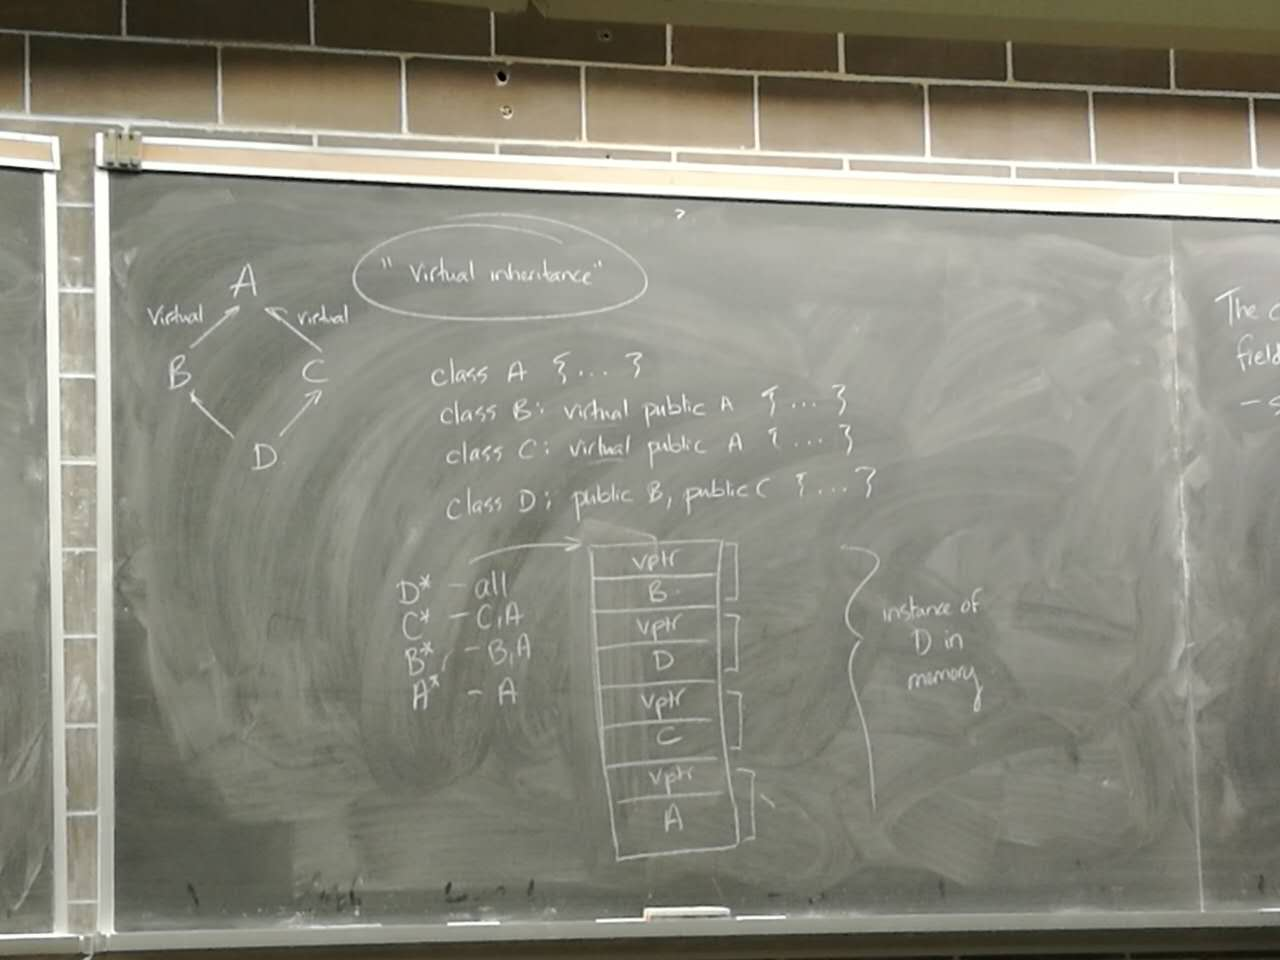 "Virtual inheritance"
A
Virtual
virtual
B
C
D
class A {...}
class B: virtual public A {...}
class C: virtual public A {...}
class D: public B, public C {...}
D* - all
C* - C, A
B* - B, A
A* - A
vptr
B
vptr
D
vptr
C
vptr
A
instance of
D in
memory
The
field